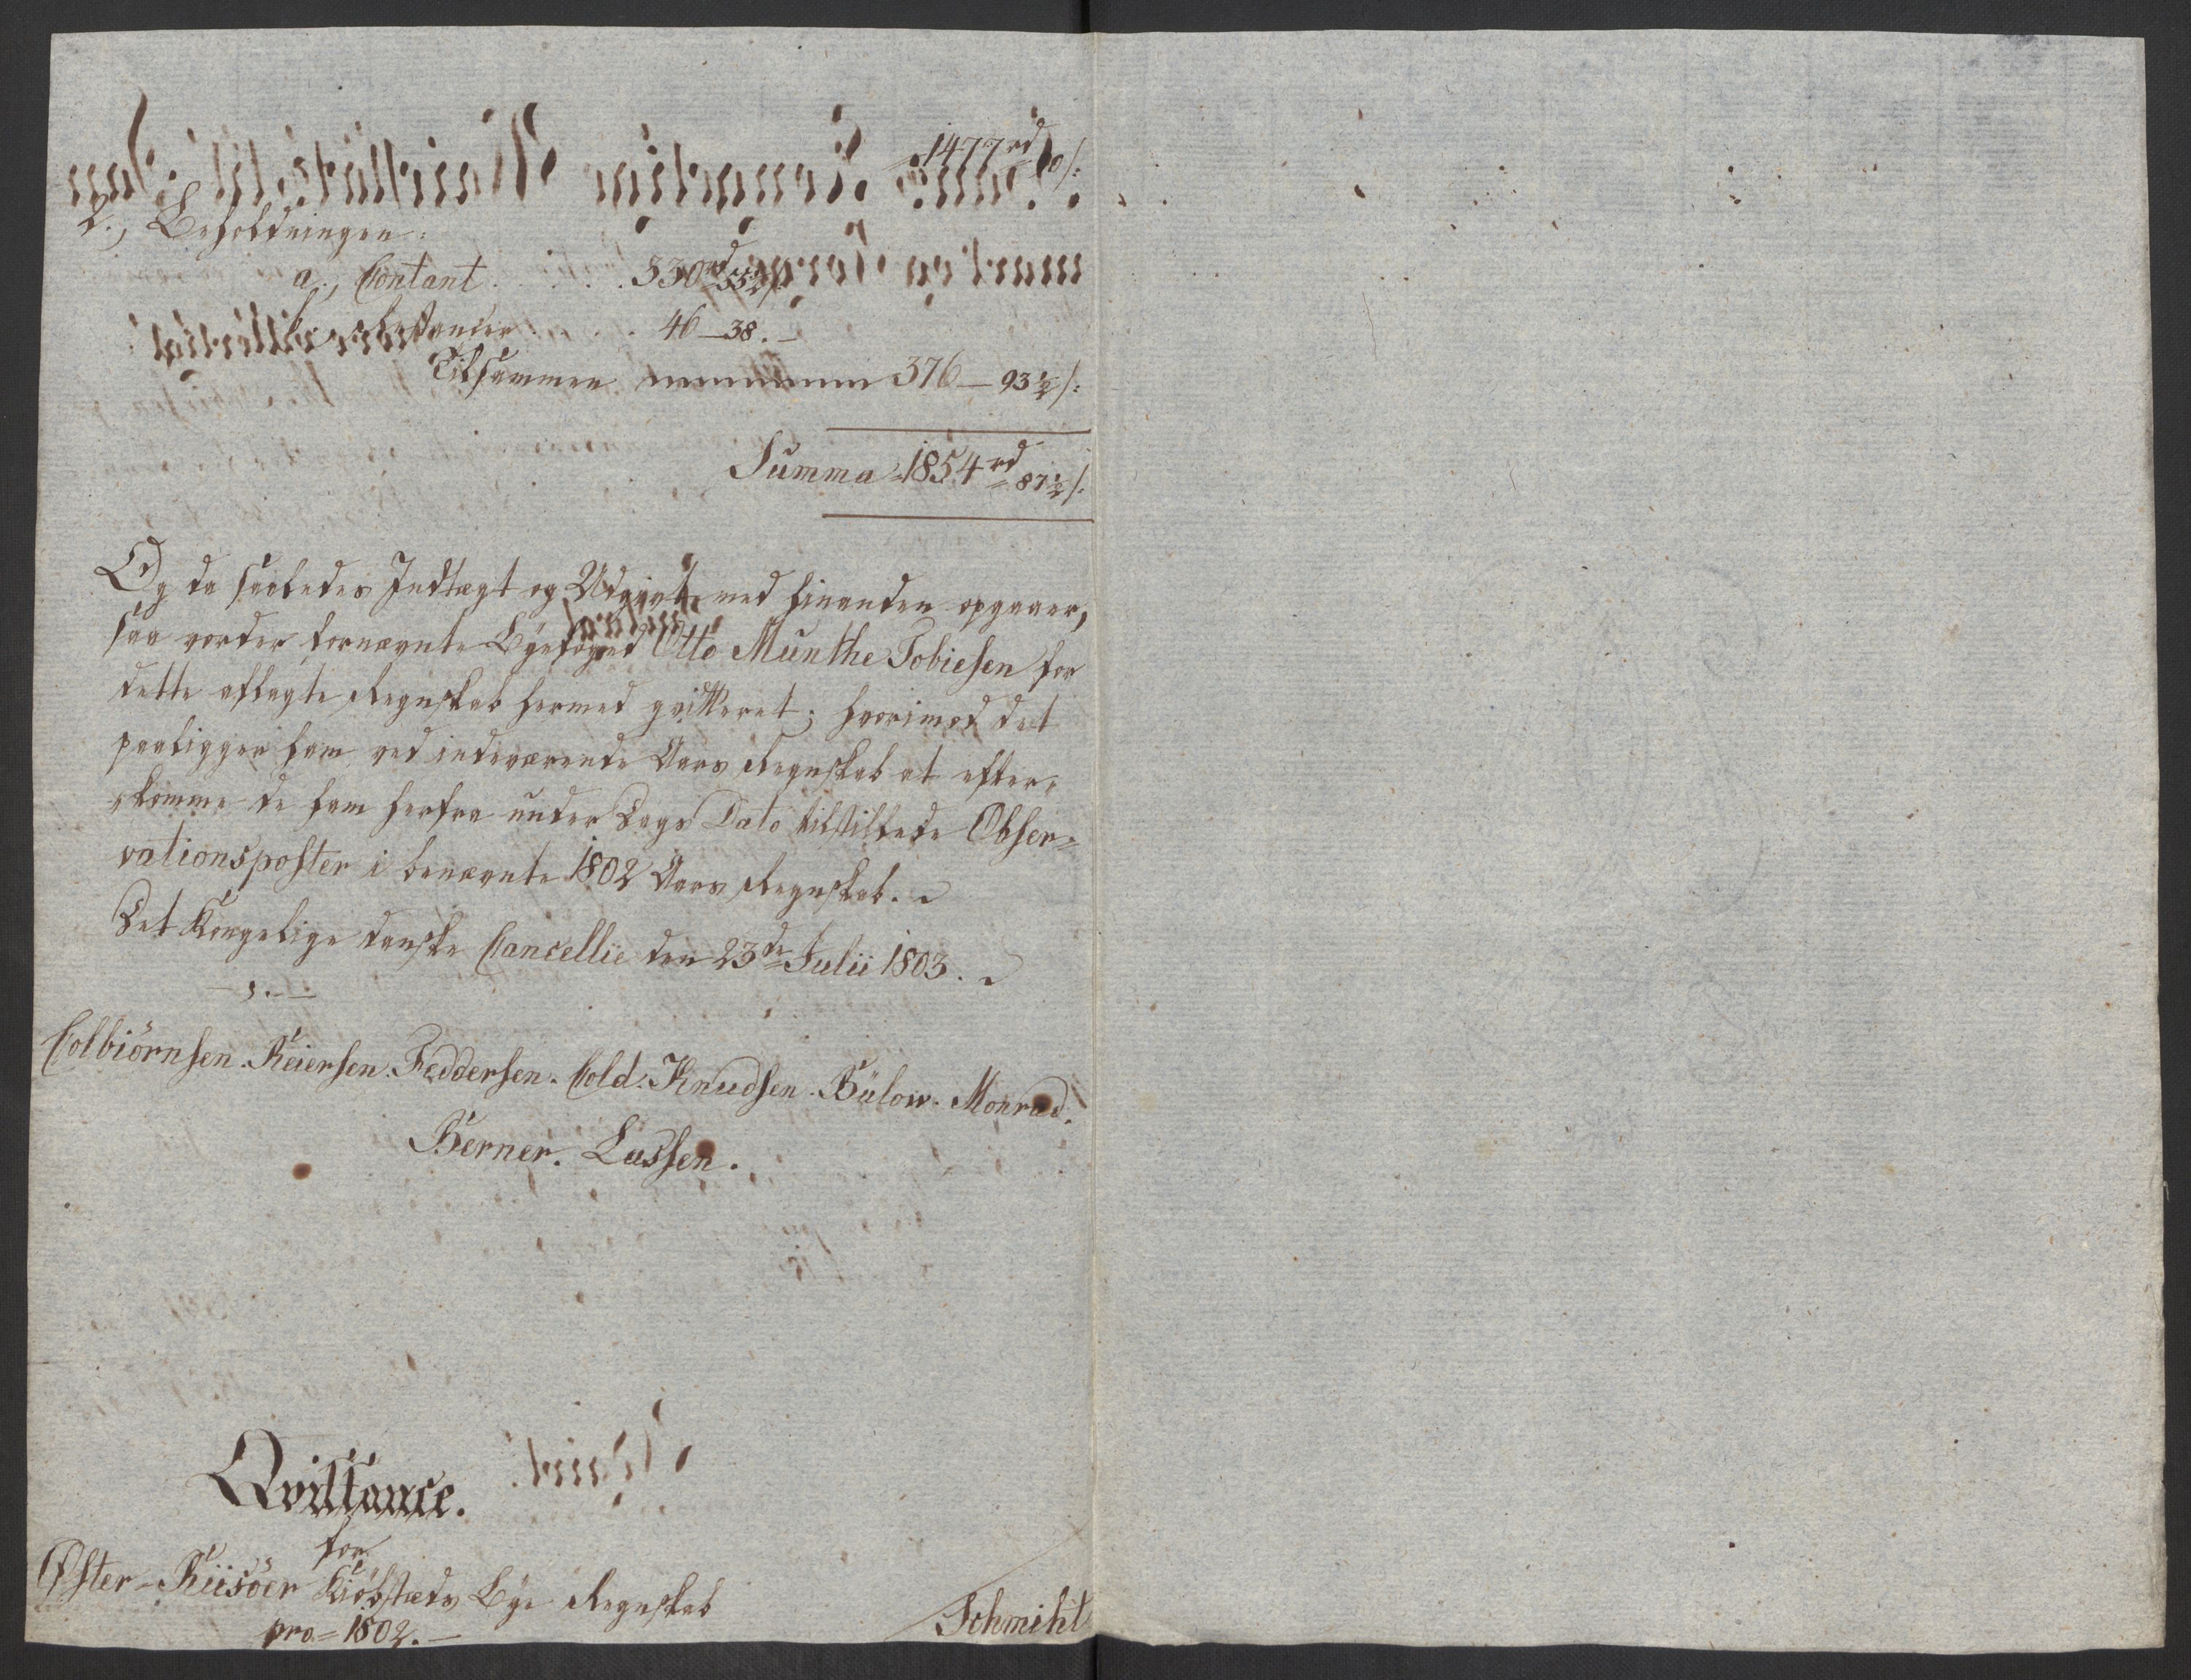 1477rd
2., Beholdningen:
a., Contant . . . . . 330rd 55½ s:
b., Restancer . . . . 46 – 38. –
Tilsammen 376 – 93½ s:
Summa 1854rd 87½ s:
Og da saaledes Indtægt og Udgivt med hinanden opgaaer,
saa vorder fornævnte Byefoged Otto Munthe Tobiesen for
dette aflagte Regnskab hermed qvitteret; hvorimod det
paaligger ham ved indeværende Aars Regnskab at efter-
komme de ham herfra under Dags Dato tilstillede Obser-
vationsposter i benævnte 1802 Aars Regnskab.
Det Kongelige danske Cancellie den 23de Julii 1803.
Colbiörnsen. Reiersen. Feddersen. Cold. Knudsen. Bülow. Monrad.
Berner. Lassen.
Qvittance.
for
Øster-Riisöer Kiöbstæds Bye Regnskab
pro = 1802. –
Schmiht